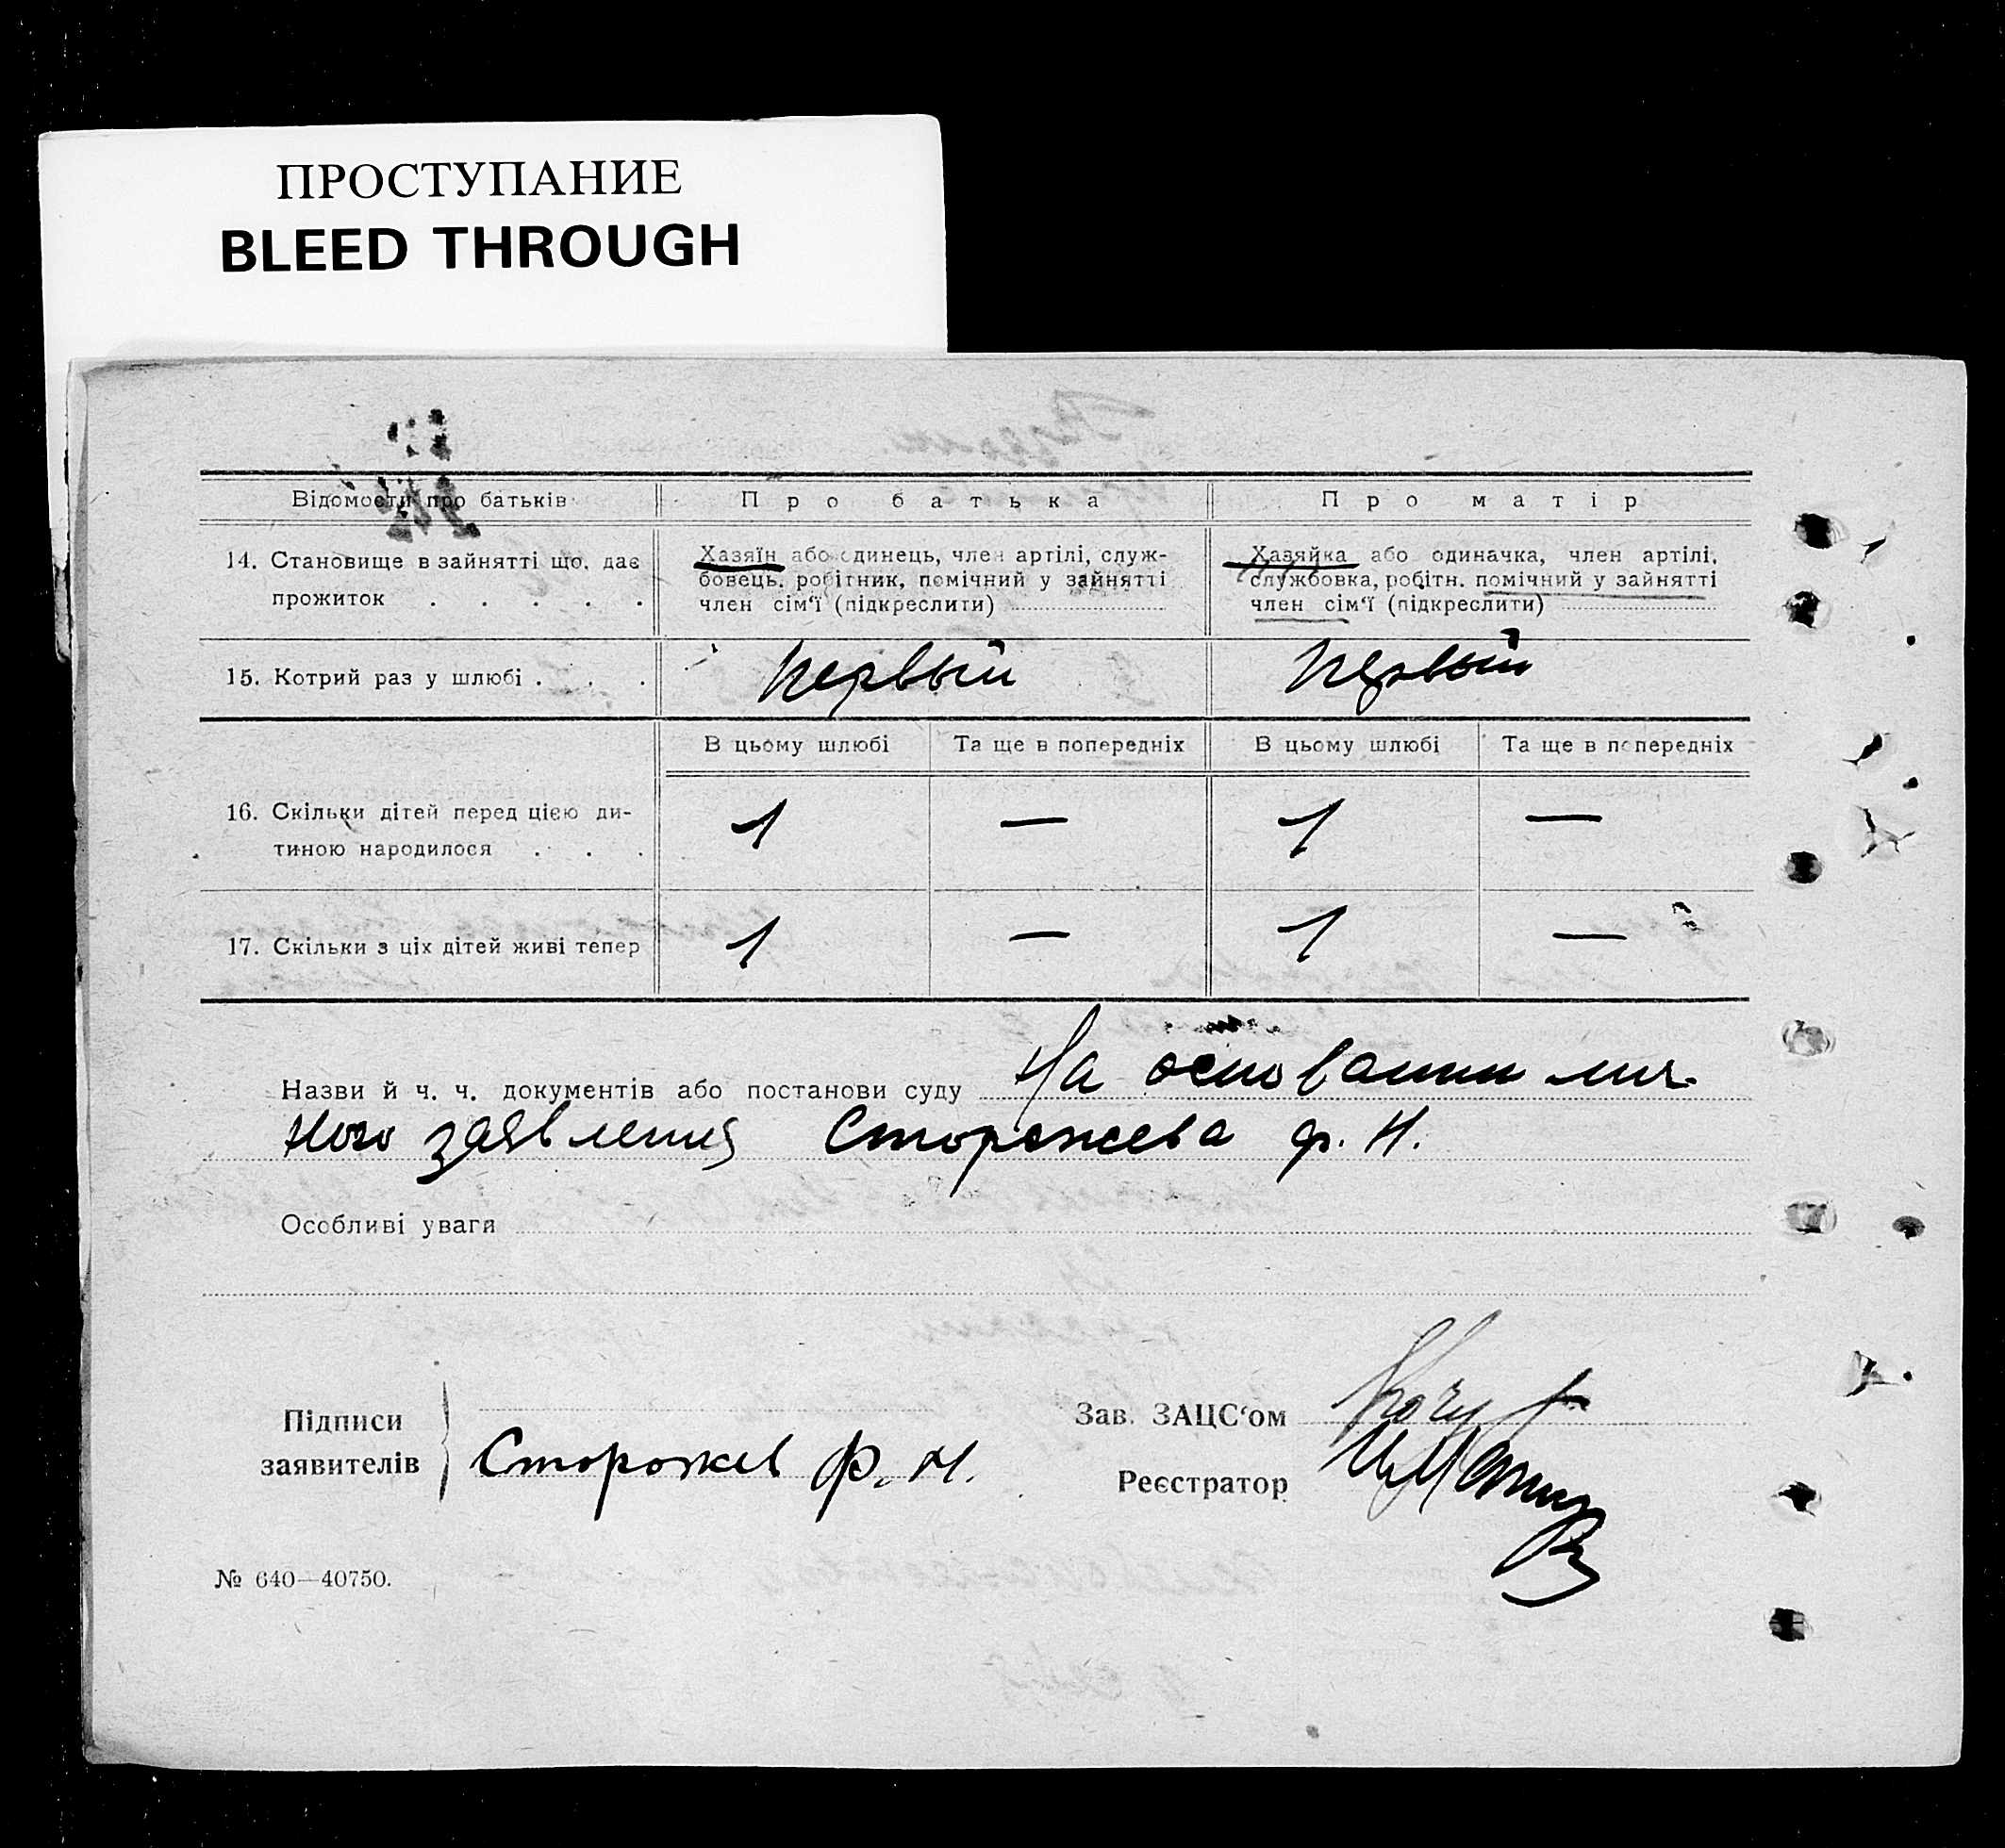 ПРОСТУПАНИЕ
BLEED THROUGH
Відомости про батьків
Про батька
Про матір
14. Становище в зайнятті що дає
прожиток . . . . .
Хазяїн або одинець, член артілі, служ-
бовець, робітник, помічний у зайнятті
член сім'ї (підкреслити)
Хазяйка або одиначка, член артілі,
службовка, робітн. помічний у зайнятті
член сім'ї (підкреслити)
15. Котрий раз у шлюбі . . .
первый
первый
В цьому шлюбі
Та ще в попередніх
В цьому шлюбі
Та ще в попередніх
16. Скільки дітей перед цією ди-
тиною народилося . . .
1 — 1 —
17. Скільки з ціх дітей живі тепер
1 — 1 —
Назви й ч. ч. документів або постанови суду На основании лич-
ного заявления Сторожева Ф. Н.
Особливі уваги
Підписи
заявителів
Сторожев Ф. Н.
Зав. ЗАЦС'ом
Реєстратор
№ 640—40750.